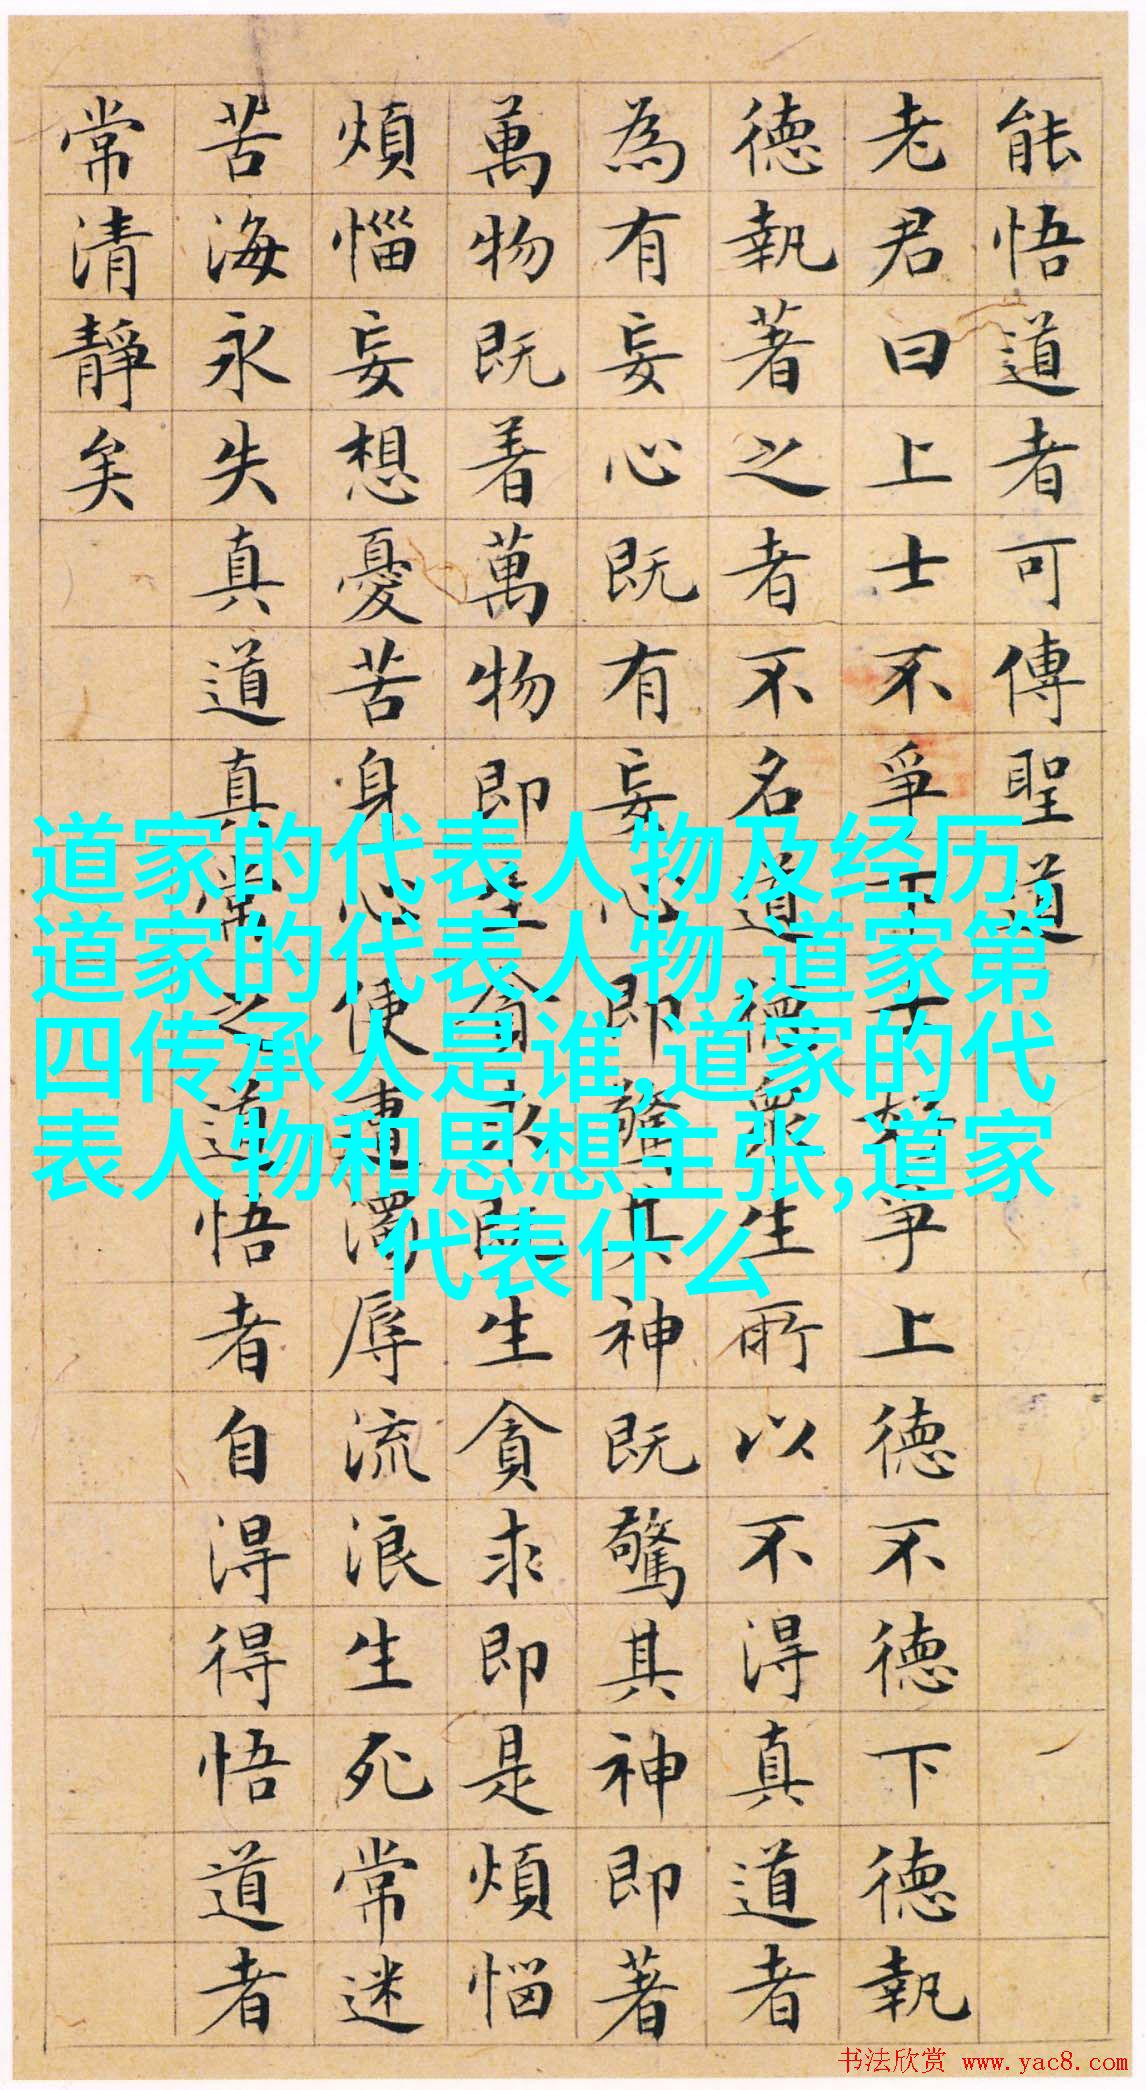 能悟道者可傳聖道
老君曰上士不爭下士好爭上德不德下德執
德執著之者不名道德衆生所以不得真道者
為有妄心既有妄心即驚其神既驚其神即著
萬物既着萬物即生貪求既生貪求即是煩惱
煩惱妄想憂苦身心便遭濁辱流浪生死常迷
苦海永失真道真常之道悟者自得得悟道者
常清靜矣
道家的代表人物及经历,
道家的代表人物,道家第
四传承人是谁,道家的代
表人物和思想主张,道家
代表什么
书法欣赏 www.yac8.com